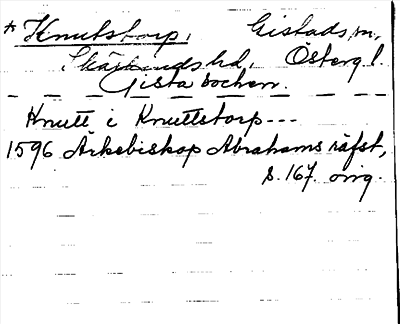 * Knutstorp, Gistads sn,
Skärkinds hd, Östergl.
Gista socken.
Knutt i Knuttstorp---
1596 Ärkebiskop Abrahams räfst,
s. 167. orig.